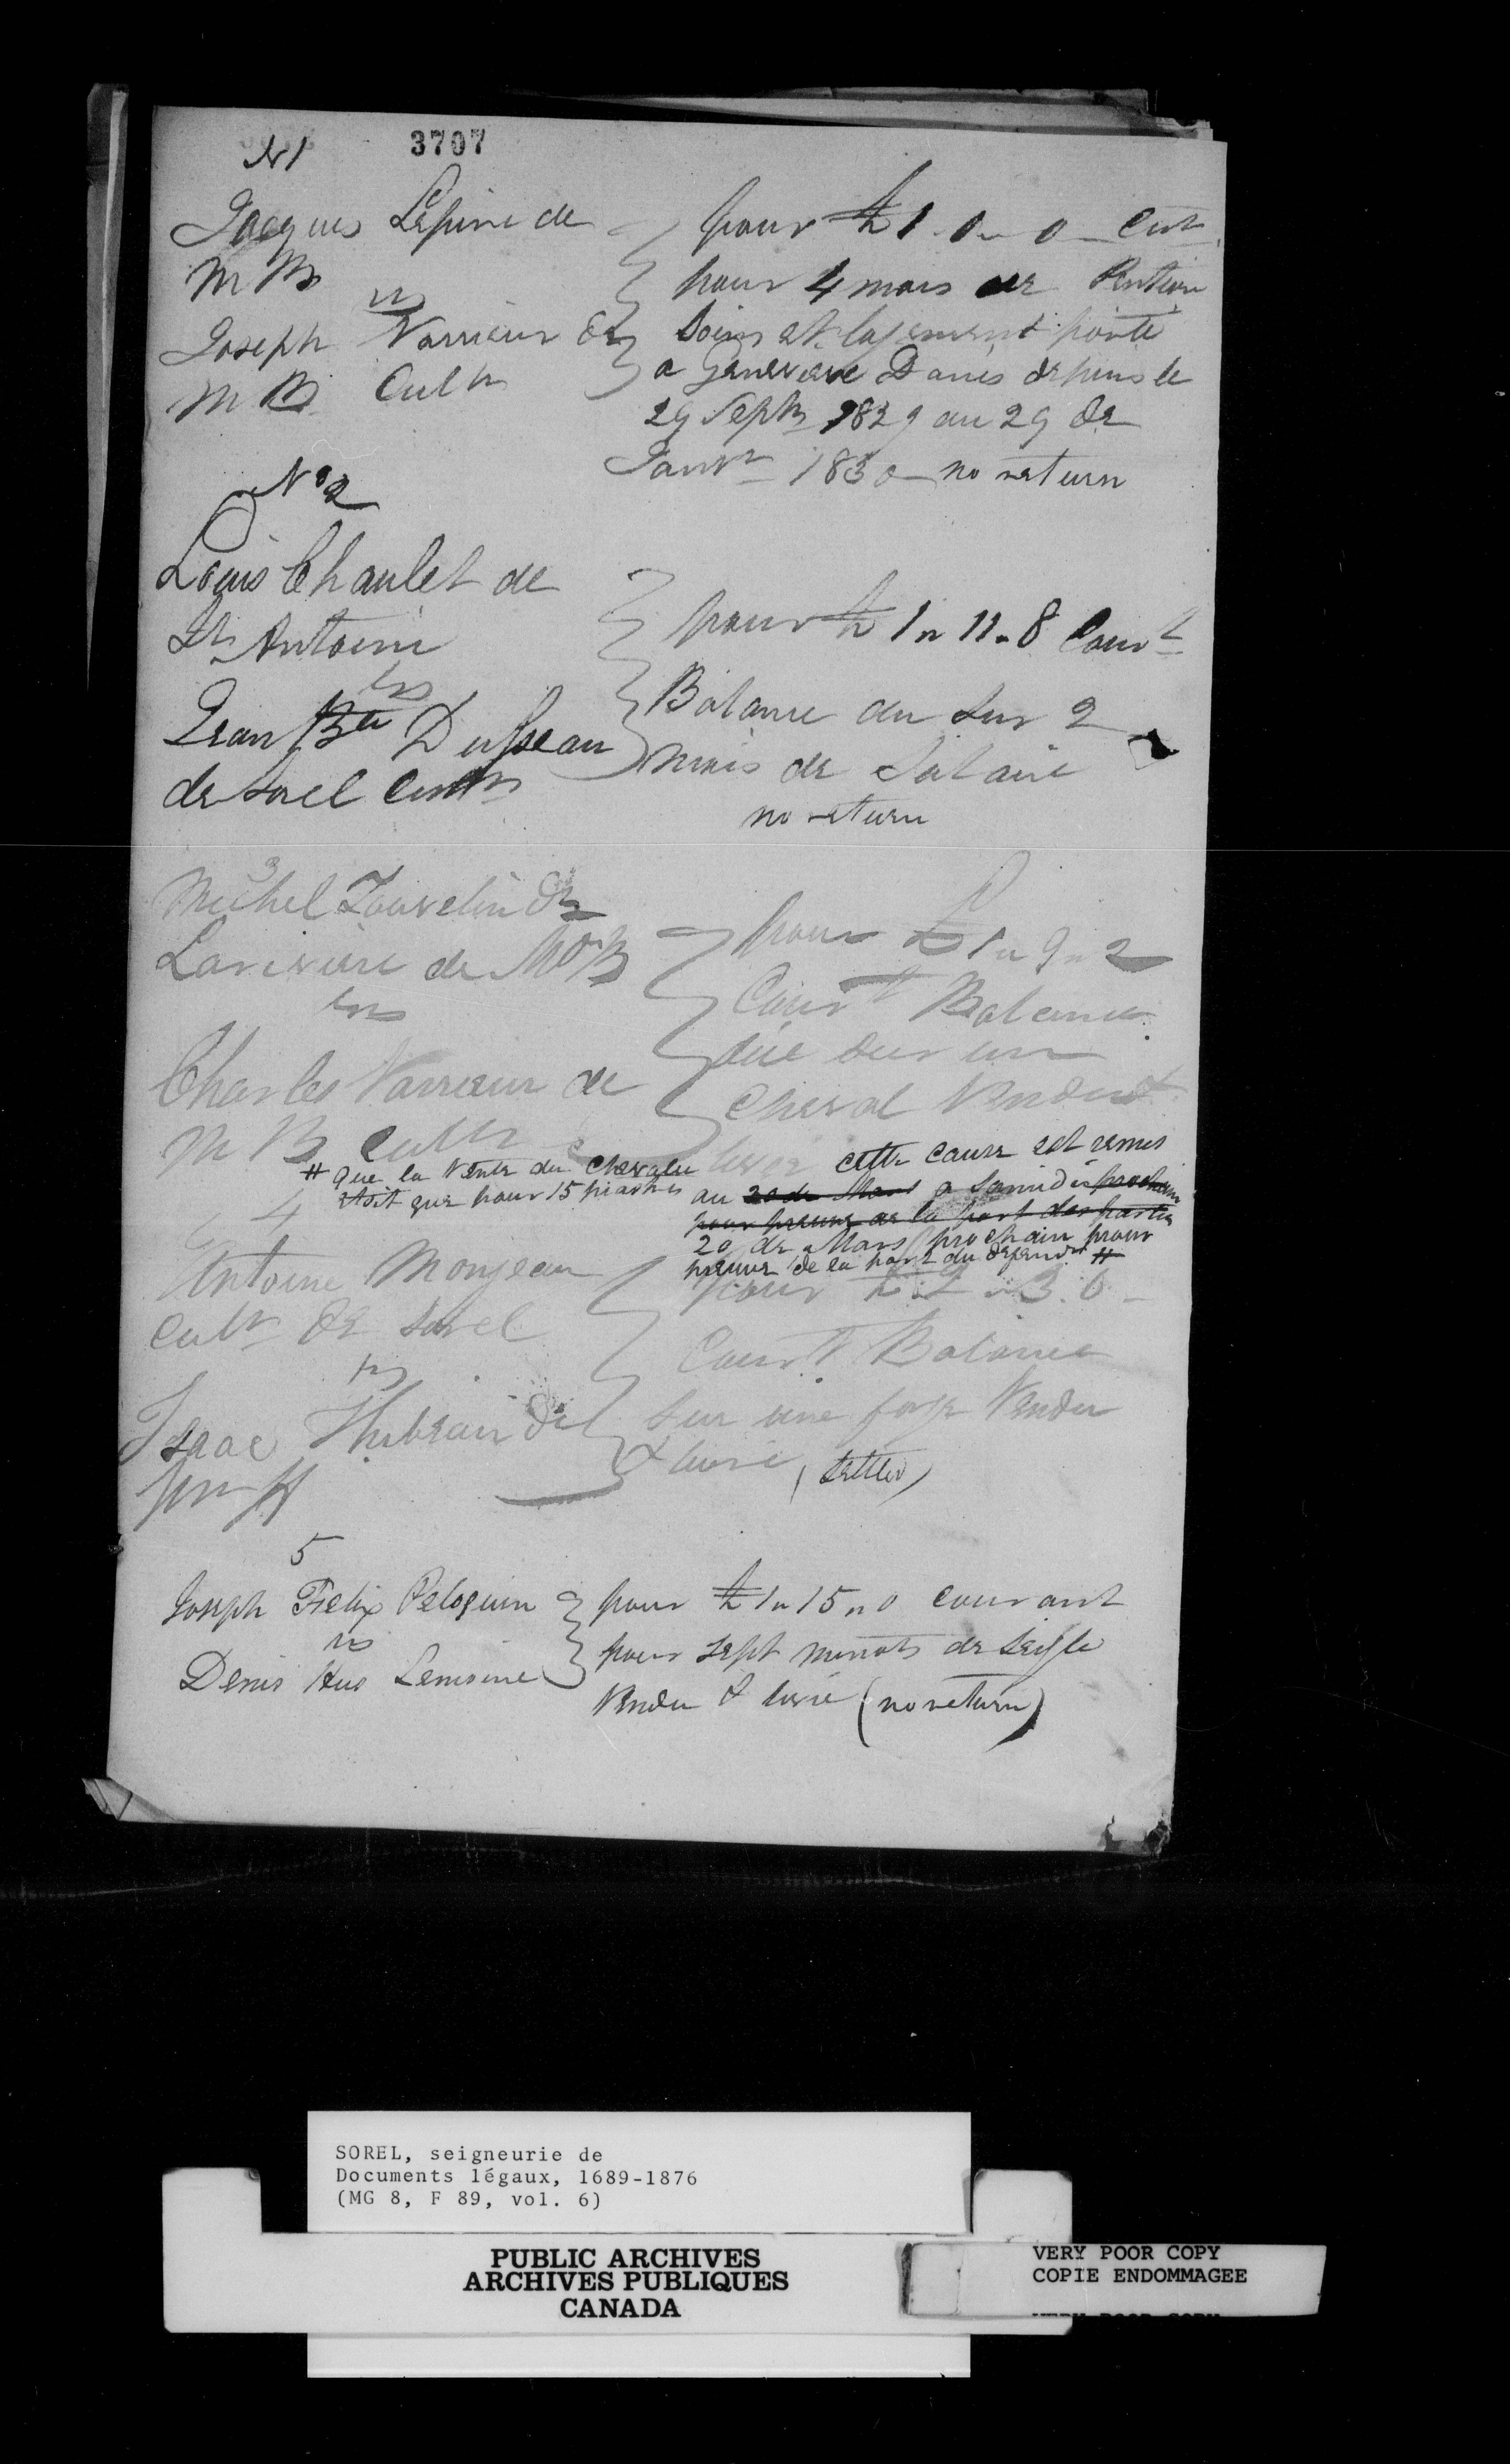 N 1 3707
Jacques Lepine de
M B
vs
Joseph Varrieur de
M B. Cultr
pour £ 1 - 0 - 0 - Curt
pour 4 mois de Pention
Soins et logement porté
a Genevieve Danis depuis le
29 Septr 1829 au 29 de
Janvr 1830 - no return
No 2
Louis Chaulet de
St Antoine
vs
Jean Bte Dusseau
de Sorel Cultr
pour £ 1 " 11 " 8 Court
Balance du sur 2
mois de Salaire
no return
3
Michel Jouvelin de
Lariviere de Mo B
vs
Charles Varrieur de
M B Cultr
pour £ 1 " 9 " 2
Court Balance
due sur un
Cheval Vendu &
livré cette cause est remis
au 20 de Mars a Samedis prochain
pour preuve de la part des parties
20 de Mars prochain pour
preuve de la part du defendr #
# que la Vente du Cheval
etoit que pour 15 piastres
4
Antoine Monjeau
Cultr de Sorel
vs
Isaac Hubeau
pour £ 3. 0 -
Court Balance
sur une forge Vendu
& livré (settled)
5
Joseph Felix Peloquin
vs
Denis Hus Lemoine
pour £ 1 " 15 " 0 courant
pour sept minots de seigle
Vendu & livré (no return)
SOREL, seigneurie de
Documents légaux, 1689-1876
(MG 8, F 89, vol. 6)
PUBLIC ARCHIVES
ARCHIVES PUBLIQUES
CANADA
VERY POOR COPY
COPIE ENDOMMAGEE
VERY POOR COPY